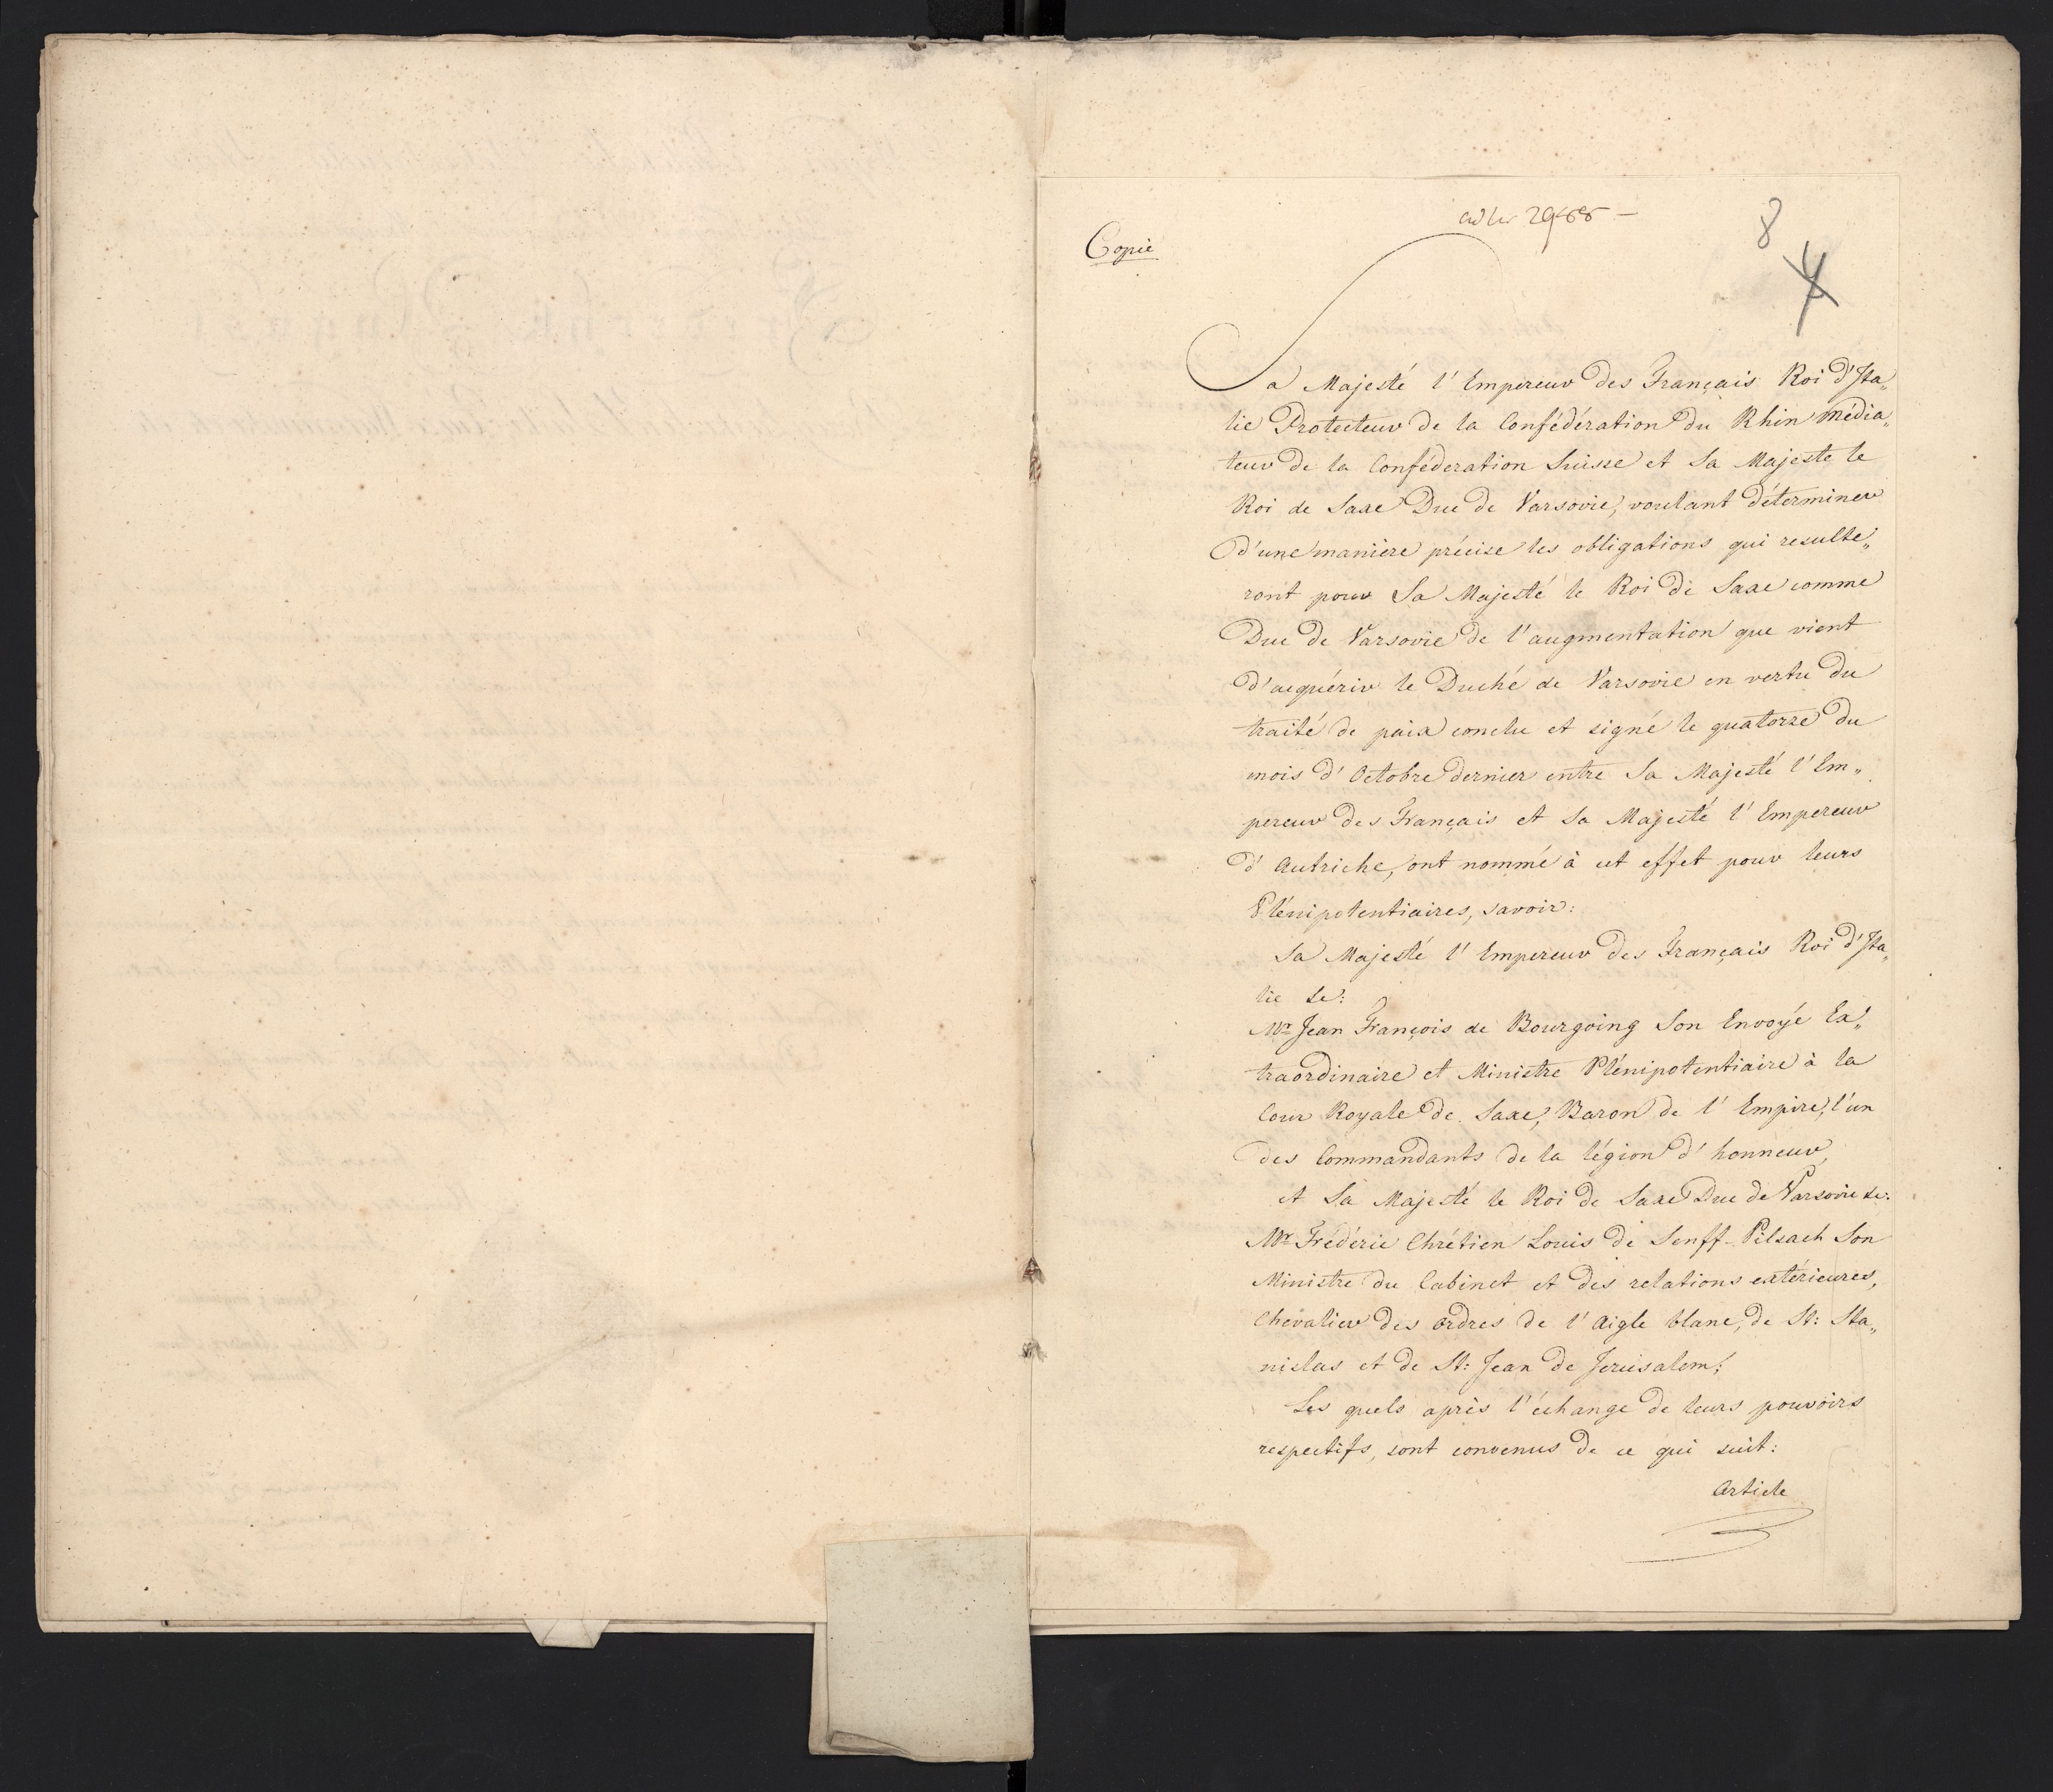 8
Copie
4
Sa Majesté l'Empereur des Français Roi d'Ita„
lie Protecteur de la Confédération du Rhin Média„
teur de la Conféderation Suisse et Sa Majeste le
Roi de Saxe Duc de Varsovie, voulant déterminer
d'une manière précise les obligations qui resulte„
ront pour Sa Majesté le Roi de Saxe comme
Duc de Varsovie de l'augmentation que vient
d'acquérir le Duché de Varsovie en vertu du
traité de paix conclu et signé le quatorze du
mois d'Octobre dernier entre Sa Majesté l'Em„
pereur des Français et Sa Majesté l'Empereur
d'Autriche, ont nommé à cet effet pour leurs
Plénipotentiaires, savoir:
Sa Majesté l'Empereur des Français Roi d'Ita„
lie &c:
Mr. Jean François de Bourgoing Son Envoyé Ex„
traordinaire et Ministre Plénipotentiaire à la
Cour Royale de Saxe, Baron de l'Empire, l'un
des Commandants de la légion d'honneur,
et Sa Majesté le Roi de Saxe Duc de Varsovie &c:
Mr. Fréderic Chrétien Louis de Senff-Pilsach Son
Ministre du Cabinet et des relations extérieures,
Chevalier des Ordres de l'Aigle blanc, de St: Sta„
nislas et de St: Jean de Jerusalem;
Les quels après l'échange de leurs pouvoirs
respectifs, sont convenus de ce qui suit:
Article